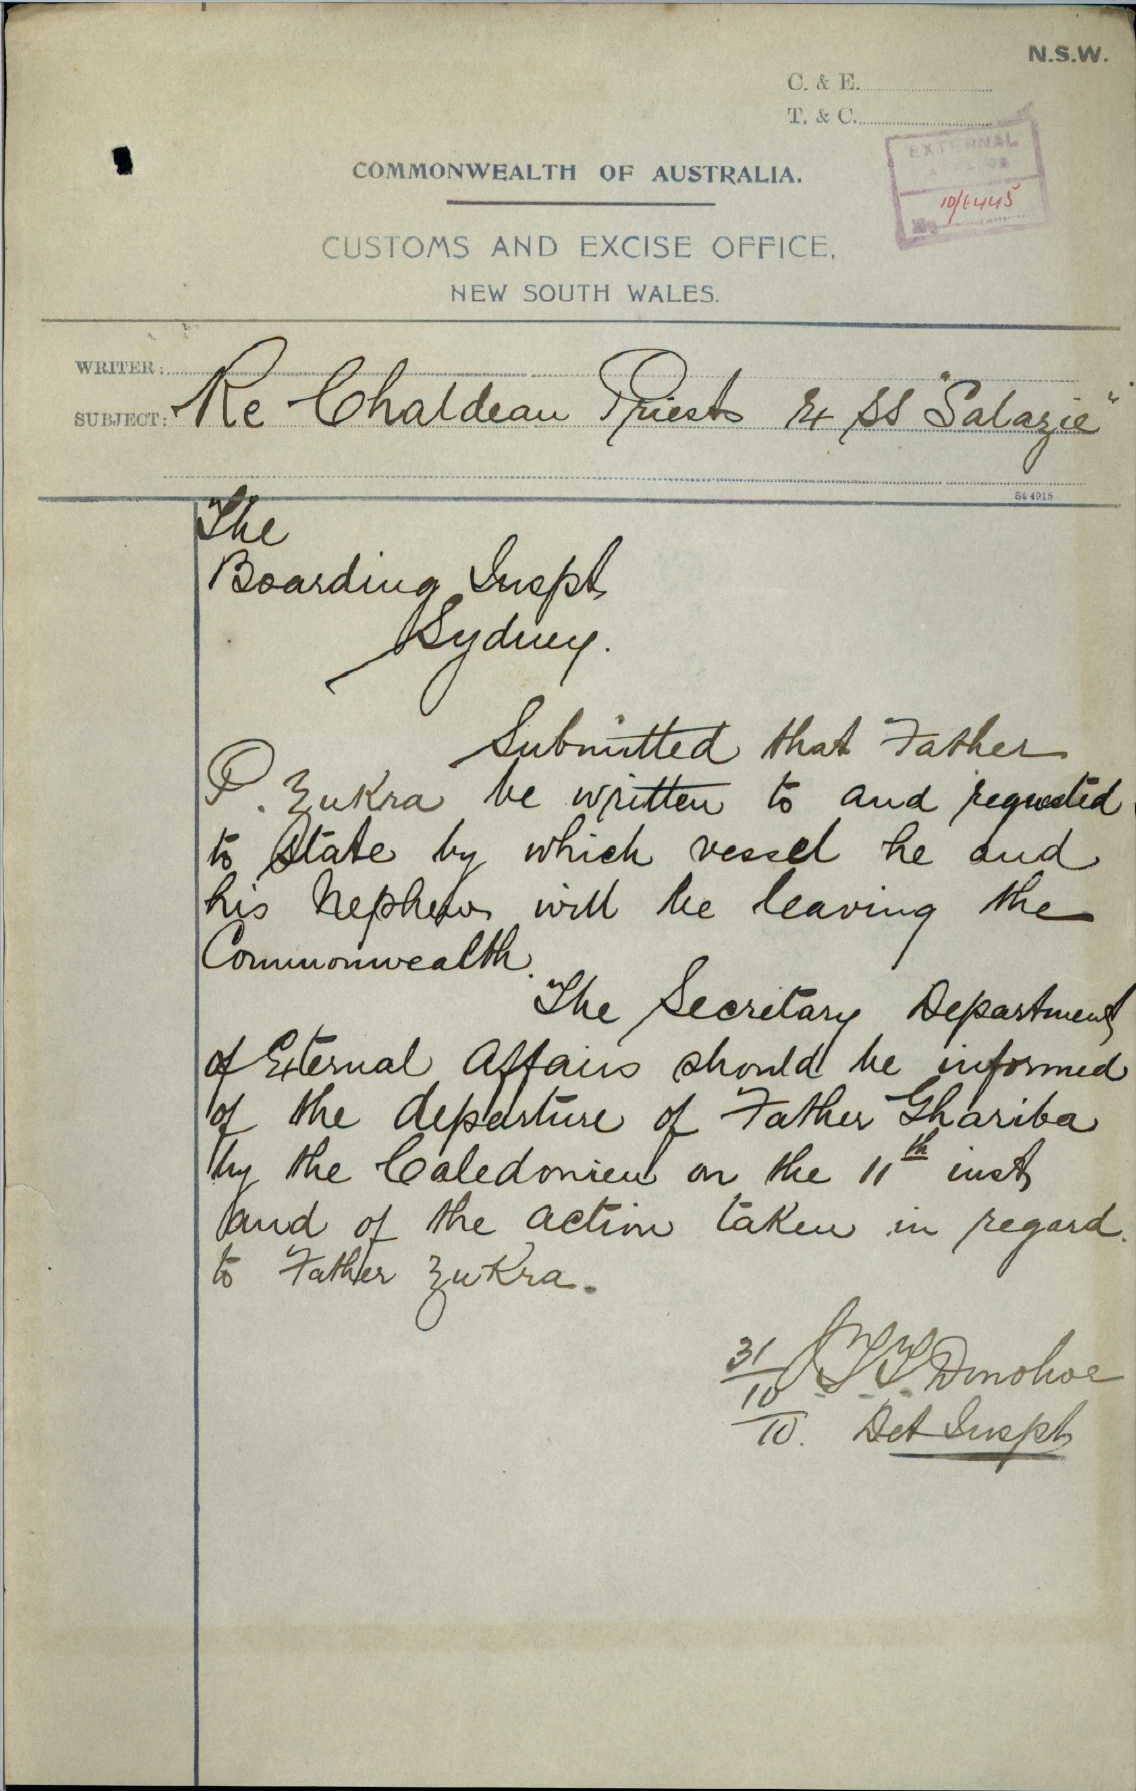 N.S.W.
C. & E.
T. & C.
EXTERNAL
10/6445
No
COMMONWEALTH OF AUSTRALIA.
CUSTOMS AND EXCISE OFFICE,
NEW SOUTH WALES.
WRITER:
SUBJECT: Re Chaldean Priests Ex SS "Salazie"
The
Boarding Inspt
Sydney.
Submitted that Father
P. Zukra be written to and requested
to state by which vessel he and
his Nephew will be leaving the
Commonwealth.
The Secretary Department
of External Affairs should be informed
of the departure of Father Ghariba
by the Caledonien on the 11th inst
and of the action taken in regard
to Father Zukra.
31/10/10. Donohoe
Det Inspt